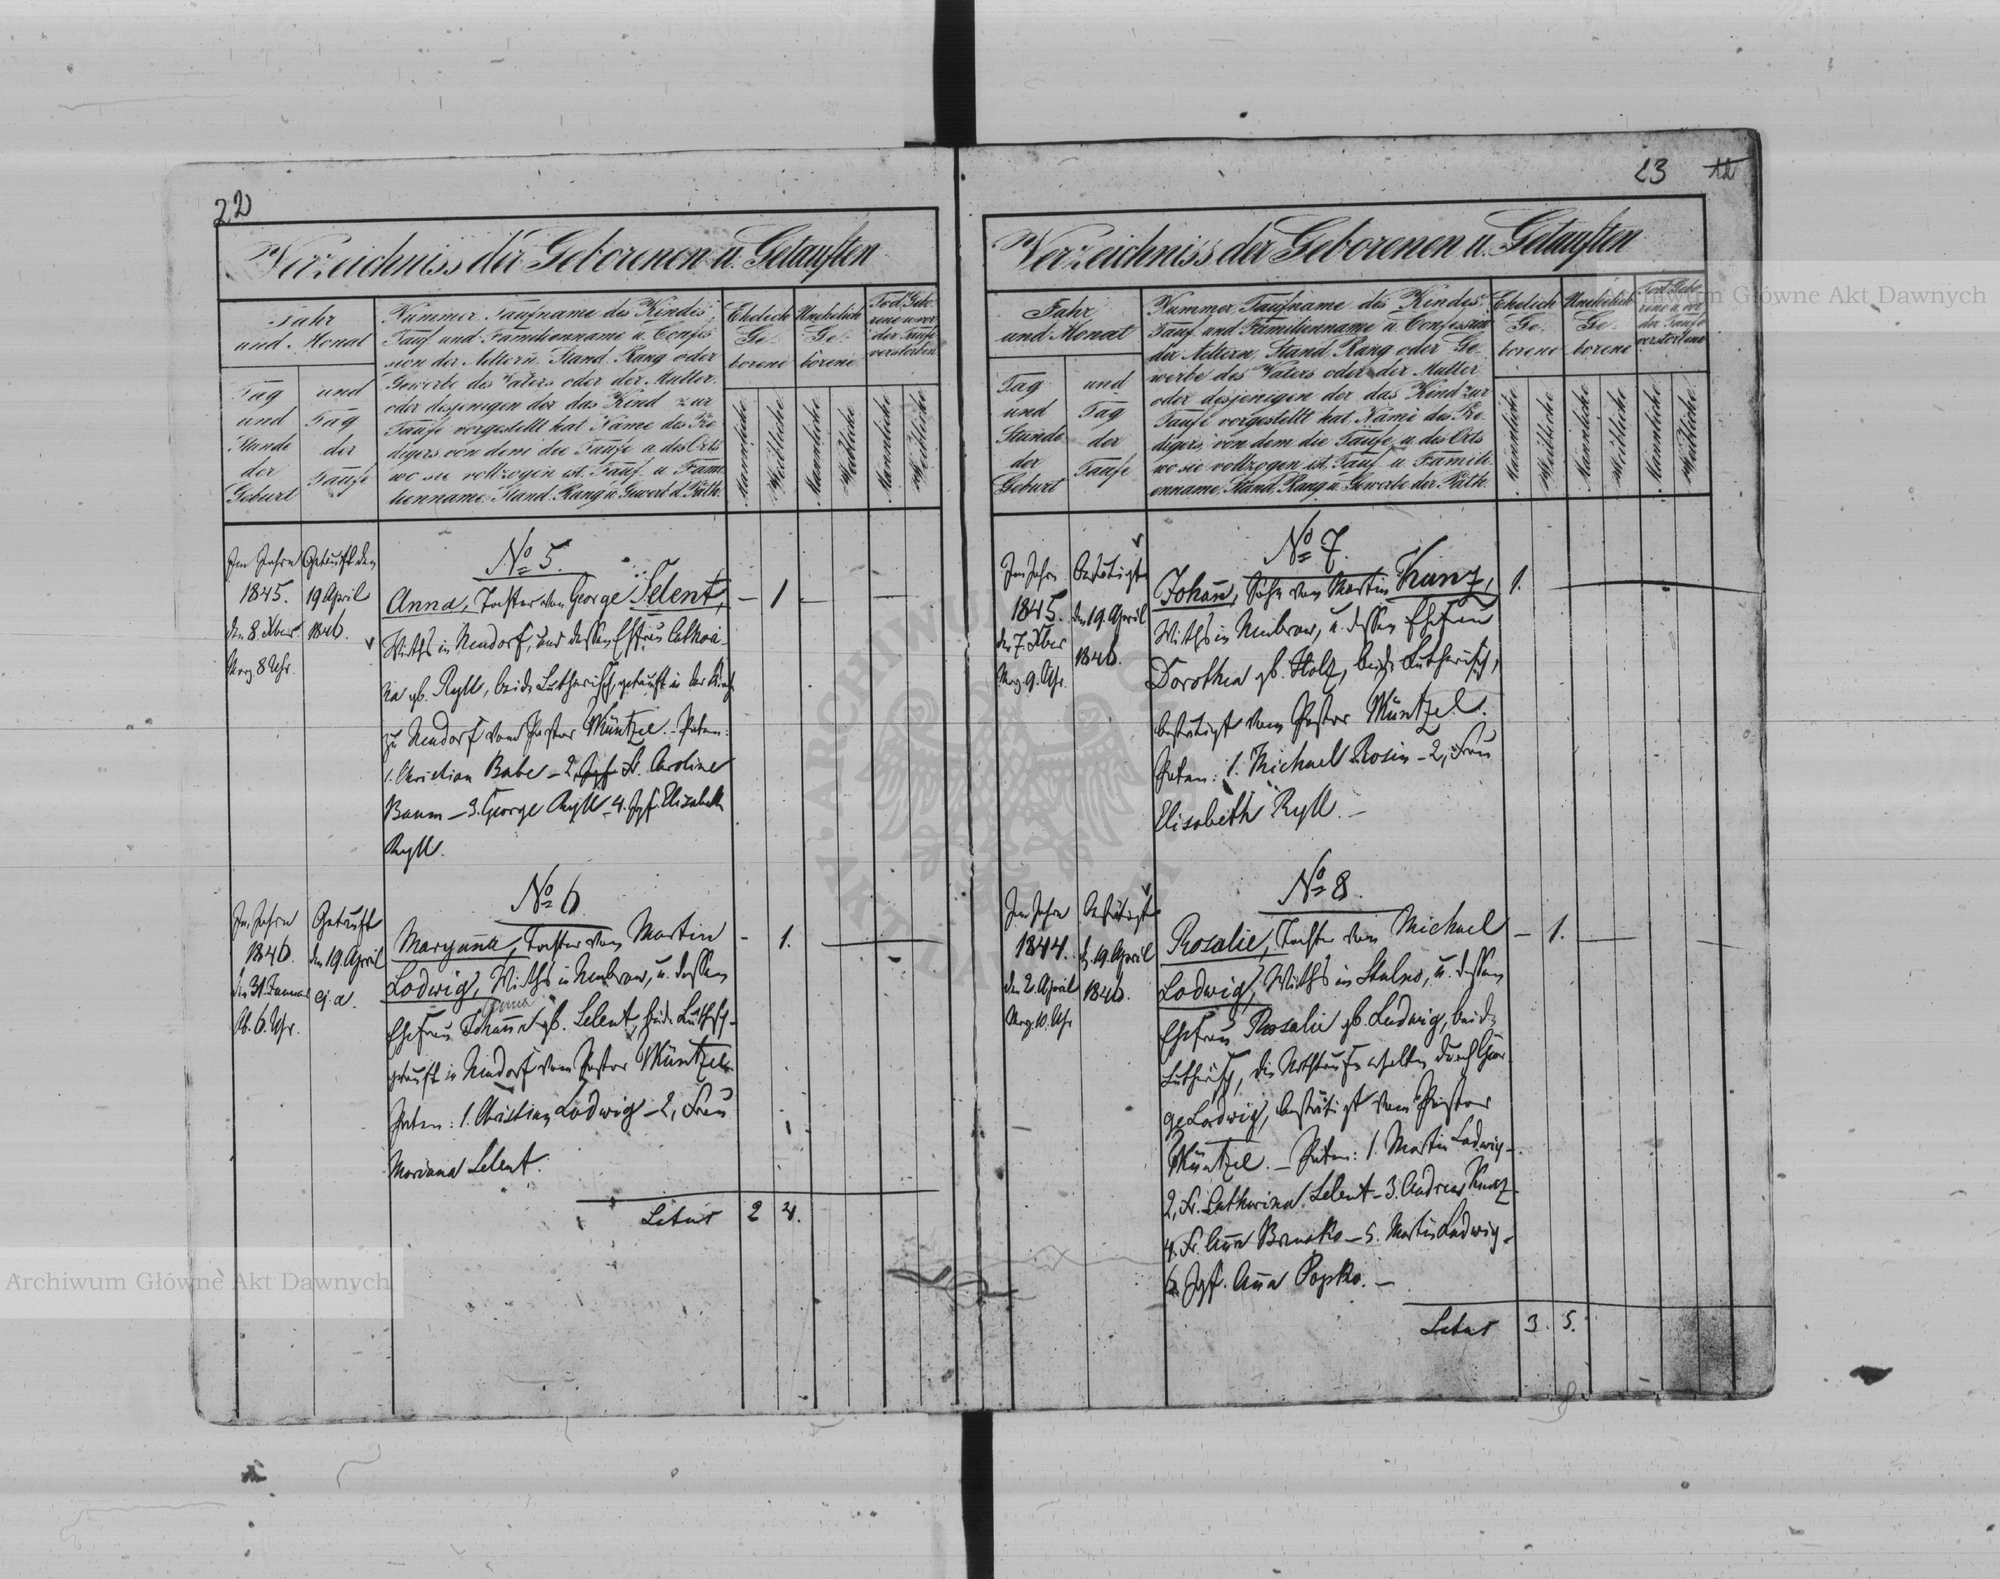 22
Verzeichniss der Geborenen u. Getauften
Jahr
und Monat
Tag
und
Stunde
der
Geburt
und
Tag
der
Taufe
Nummer Taufname des Kindes,
Tauf und Familienname u. Confes
sion der Aeltern, Stand, Rang oder
Gewerbe des Vaters oder der Mutter
oder desjenigen der das Kind zur
Taufe vorgestellt hat Name des Pre
digers von dem die Taufe u. des Orts
wo sie vollzogen ist. Tauf u. Fami
lienname, Stand, Rang u. Gewerb d. Path.
Ehelich
Ge
borene
Unehelich
Ge
borene
Tod Gebo
rene u. vor
der Taufe
verstorbene
Männliche
Weibliche
Männliche
Weibliche
Männliche
Weibliche
Im Jahre
1845.
den 8 Xber
Mrg 8 Uhr.
Getauft den
19 April
1846.
No 5.
Anna, Tochter von George Selent,
Wirths in Neudorf, und dessen Ehefrau Catha
rina gb. Ryll, beide Lutherisch, getauft in der Kirche
zu Neudorf vom Pastor Müntzel. - Paten:
1. Christian Babe - 2, Fr. Caroline
Baum - 3. George Ryll - 4. Jgf. Elisabeth
Ryll.
- 1 - -
Im Jahre
1846.
den 31 Januar
Ab. 6. Uhr.
Getauft
den 19 April
ej. a.
No 6.
Maryanna, Tochter von Martin
Lodwig, Wirths in Neubrow, u. dessen
Anna
Ehefrau Johanna gb. Selent, beide Luthrsch -
getauft in Neudorf vom Pastor Müntzel.
Paten: 1. Christian Lodwig - 2, Frau
Mariana Selent.
- 1. -
Latus 2 4.
23 12
Verzeichniss der Geborenen u. Getauften
Jahr
und Monat
Tag
und
Stunde
der
Geburt
und
Tag
der
Taufe
Nummer, Taufname des Kindes,
Tauf und Familienname u. Confession
der Aeltern, Stand, Rang oder Ge
werbe des Vaters oder der Mutter
oder desjenigen der das Kind zur
Taufe vorgestellt hat, Name des Pre
digers, von dem die Taufe u. des Orts
wo sie vollzogen ist, Tauf u. Famili
enname, Stand, Rang u. Gewerbe der Path.
Ehelich
Ge
borene
Unehelich
Ge
borene
Tod Gebo
rene u. vor
der Taufe
verstorbene
Männliche
Weibliche
Männliche
Weibliche
Männliche
Weibliche
Im Jahre
1845.
den 7. Xber
Mrg 9. Uhr.
Bestätigt
den 19. April
1846.
No 7.
Johann, Sohn von Martin Kunz,
Wirths in Neubrow, u. dessen Ehefrau
Dorothea gb. Holz, beide Lutherisch,
bestätigt vom Pastor Müntzel.
Paten: 1. Michael Rosin - 2, Frau
Elisabeth Ryll. -
1. -
Im Jahre
1844.
den 2. April
Mrg. 10. Uhr
Bestätigt
d. 19. April
1846.
No 8.
Rosalie, Tochter von Michael
Lodwig, Wirths in Stulno, u. dessen
Ehefrau Rosalie gb. Ludwig, beide
Lutherisch, die Nothtaufe erhalten durch Geor
ge Lodwig, bestätigt vom Pastor
Müntzel. - Paten: 1. Martin Ladwig -
2, Fr. Catharina Selent - 3. Andreas Kunz -
4. Fr. Anna - 5. Martin Ladwig -
6. Jgf. Anna Popko. -
- 1. - -
Latus 3. 5.
Archiwum Główne Akt Dawnych
Archiwum Główne Akt Dawnych